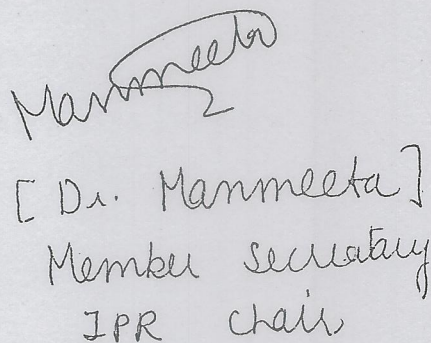 Manmeeta
[Dr. Manmeeta]
Member Secretary
IPR Chair